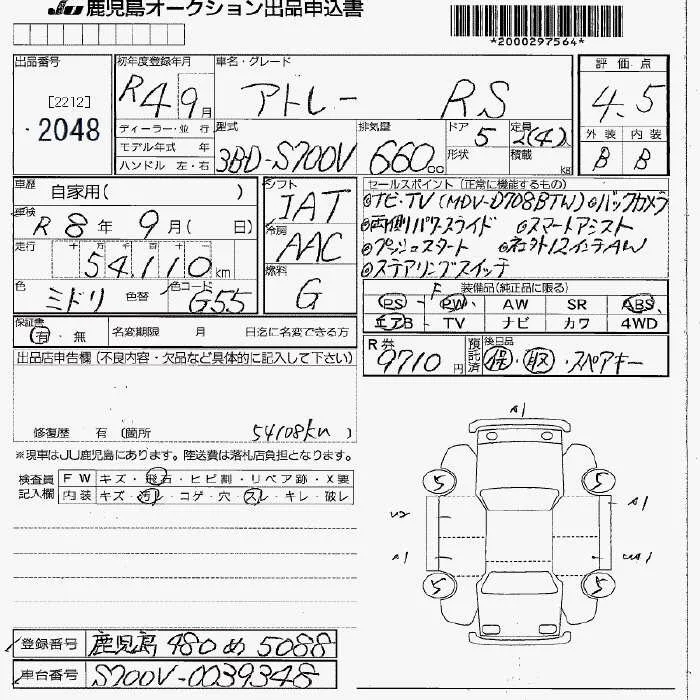 JU 鹿児島オークション出品申込書
*2000297564*
出品番号
[2212]
2048
初年度登録年月
R4 9月
車名・グレード
アトレー RS
評価点
4.5
外装 内装
B B
ディーラー・並 行
モデル年式 年
ハンドル 左・右
型式
3BD-S700V
排気量
660cc
ドア
5
形状
定員
2(4)人
積載
kg
車歴
自家用( )
車検
R 8年 9月( 日)
走行
十万千百十一
54,110km
色
ミドリ
色替
色コード
G55
シフト
IAT
冷房
AAC
燃料
G
セールスポイント(正常に機能するもの)
◎ナビ・TV(MDV-D708BTW)◎バックカメラ
◎両側パワースライド ◎スマートアシスト
◎プッシュスタート ◎社外12インチAW
◎ステアリングスイッチ
装備品(純正品に限る)
F
PS PW AW SR ABS
エアB TV ナビ カワ 4WD
保証書
有・無
名変期限 月 日迄に名変できる方
R券
9710円
預託済
後日品
保・取・スペアキー
出品店申告欄(不良内容・欠品など具体的に記入して下さい)
修復歴 有 (箇所 54108km )
※現車はJU鹿児島にあります。陸送費は落札店負担となります。
検査員記入欄
FW キズ・飛石・ヒビ割・リペア跡・X要
内装 キズ・汚レ・コゲ・穴・スレ・キレ・破レ
A1
5 5
A1
A1
5 5
登録番号 鹿児島 480 め 5088
車台番号 S700V-0039348